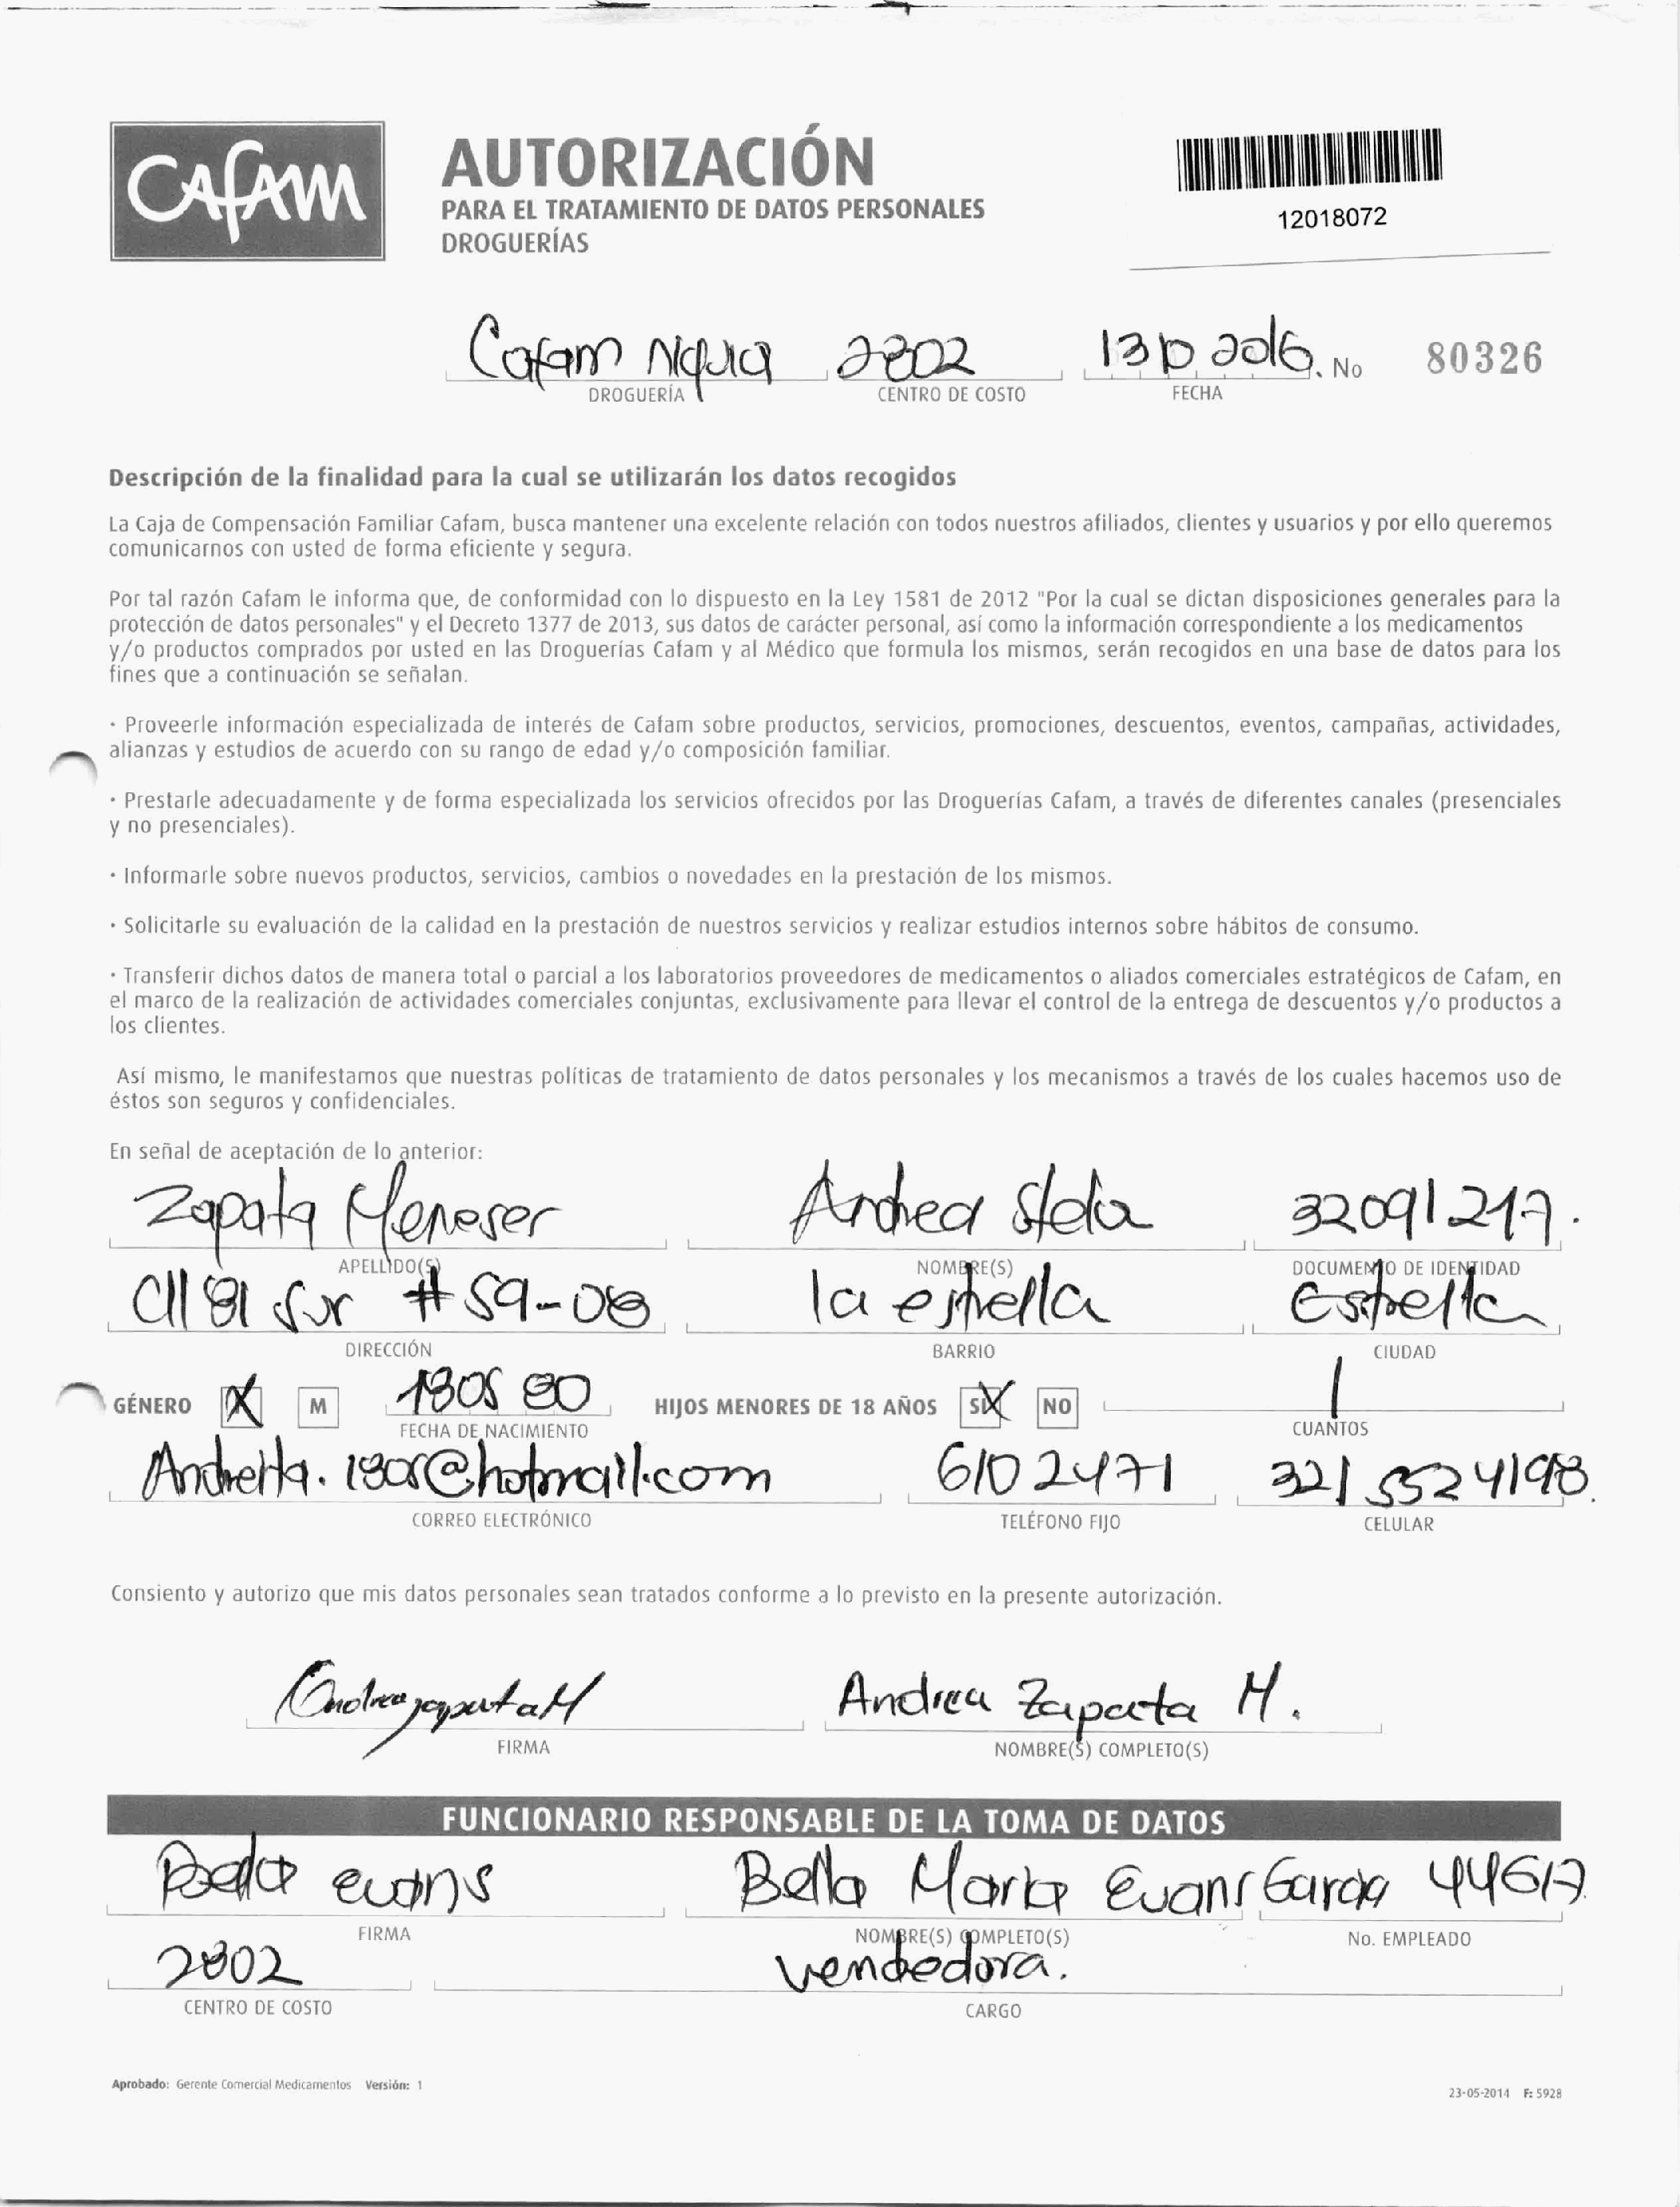 CAFAM
AUTORIZACIÓN
PARA EL TRATAMIENTO DE DATOS PERSONALES
DROGUERÍAS
12018072
Cafam Niquia 2802 13 10 2016. No 80326
DROGUERÍA CENTRO DE COSTO FECHA
Descripción de la finalidad para la cual se utilizarán los datos recogidos
La Caja de Compensación Familiar Cafam, busca mantener una excelente relación con todos nuestros afiliados, clientes y usuarios y por ello queremos
comunicarnos con usted de forma eficiente y segura.
Por tal razón Cafam le informa que, de conformidad con lo dispuesto en la Ley 1581 de 2012 "Por la cual se dictan disposiciones generales para la
protección de datos personales" y el Decreto 1377 de 2013, sus datos de carácter personal, así como la información correspondiente a los medicamentos
y/o productos comprados por usted en las Droguerías Cafam y al Médico que formula los mismos, serán recogidos en una base de datos para los
fines que a continuación se señalan.
· Proveerle información especializada de interés de Cafam sobre productos, servicios, promociones, descuentos, eventos, campañas, actividades,
alianzas y estudios de acuerdo con su rango de edad y/o composición familiar.
· Prestarle adecuadamente y de forma especializada los servicios ofrecidos por las Droguerías Cafam, a través de diferentes canales (presenciales
y no presenciales).
· Informarle sobre nuevos productos, servicios, cambios o novedades en la prestación de los mismos.
· Solicitarle su evaluación de la calidad en la prestación de nuestros servicios y realizar estudios internos sobre hábitos de consumo.
· Transferir dichos datos de manera total o parcial a los laboratorios proveedores de medicamentos o aliados comerciales estratégicos de Cafam, en
el marco de la realización de actividades comerciales conjuntas, exclusivamente para llevar el control de la entrega de descuentos y/o productos a
los clientes.
Así mismo, le manifestamos que nuestras políticas de tratamiento de datos personales y los mecanismos a través de los cuales hacemos uso de
éstos son seguros y confidenciales.
En señal de aceptación de lo anterior:
Zapata Meneses Andrea Stela 32091217.
APELLIDO(S) NOMBRE(S) DOCUMENTO DE IDENTIDAD
Cll 81 Sur # 59-08 la estrella Estrella
DIRECCIÓN BARRIO CIUDAD
GÉNERO X M 1805 80 HIJOS MENORES DE 18 AÑOS SI X NO 1
FECHA DE NACIMIENTO CUANTOS
6102471 321 5524198.
CORREO ELECTRÓNICO TELÉFONO FIJO CELULAR
Consiento y autorizo que mis datos personales sean tratados conforme a lo previsto en la presente autorización.
Andrea zapata M Andrea Zapata M.
FIRMA NOMBRE(S) COMPLETO(S)
FUNCIONARIO RESPONSABLE DE LA TOMA DE DATOS
Bella evans Bella Maria Evans Garcia 44617
FIRMA NOMBRE(S) COMPLETO(S) No. EMPLEADO
2802 vendedora.
CENTRO DE COSTO CARGO
Aprobado: Gerente Comercial Medicamentos Versión: 1
23-05-2014 F: 5928